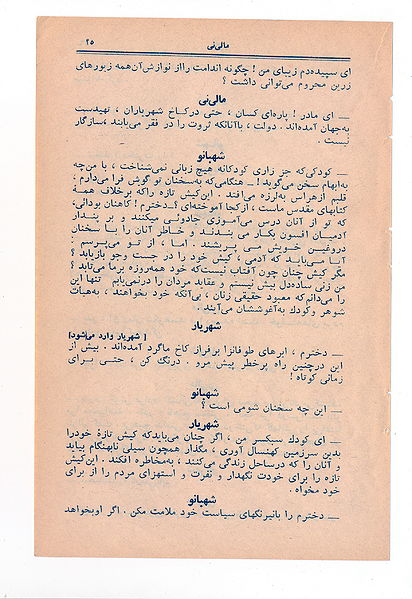 مالی‌نی
۲۵
ای سپیده‌دم زیبای من ! چگونه اندامت رااز نوازش‌آن‌همه زیورهای
زرین محروم می‌توانی داشت ؟
مالی‌نی
— ای مادر ! پاره‌ای کسان ، حتی درکاخ شهریاران ، تهیدست
به‌جهان آمده‌اند . دولت ، باآنانکه ثروت را در فقر می‌یابند ،سازگار
نیست .
شهبانو
— کودکی‌که جز زاری کودکانه هیچ زبانی نمی‌شناخت ، با من‌چه
به‌ابهام سخن می‌گوید !— هنگامی‌که به‌سخنان تو گوش فرا می‌دارم ،
قلبم ازهراس به‌لرزه می‌افتد . این‌کیش تازه راکه برخلاف همهٔ
کتابهای مقدس ماست ، ازکجا آموخته‌ای ؟—دخترم ! کاهنان بودائی،
که تو از آنان درس می‌آموزی جادوئی میکنند و بر پندار
آدمیان افسون بکار می بندند و خاطر آنان را با سخنان
دروغین خویش می پریشند . اما ، از تو می‌پرسم :
آیا می‌باید که آدمی ، کیش خود را در جست وجو بازیابد ؟
مگر کیش چنان چون آفتاب نیست‌که خود همه‌روزه برما می‌تابد ؟
من زنی ساده‌دل بیش نیستم و عقاید مردان را درنمی‌یابم . تنها این
را می‌دانم‌که معبود حقیقی زنان ، بی‌آنکه خود بخواهند ، به‌هیأت
شوهر وکودك به‌آغوششان می‌آیند .
شهریار
[ شهریار وارد می‌شود]
— دخترم ، ابرهای طوفانزا برفراز کاخ ماگرد آمده‌اند . بیش از
این درچنین راه پرخطر پیش مرو . درنگ کن ، حتی برای
زمانی کوتاه !
شهبانو
— این چه سخنان شومی است ؟
شهریار
— ای کودك سبکسر من ، اگر چنان می‌بایدکه کیش تازهٔ خودرا
بدین سرزمین کهنسال آوری ، مگذار همچون سیلی نابهنگام بیاید
و آنان را که درساحل زندگی می‌کنند ، به‌مخاطره افکند . این‌کیش
تازه را برای خودت نگهدار و نفرت و استهزای مردم را از برای
خود مخواه .
شهبانو
— دخترم را بانیرنگهای سیاست خود ملامت مکن . اگر اوبخواهد